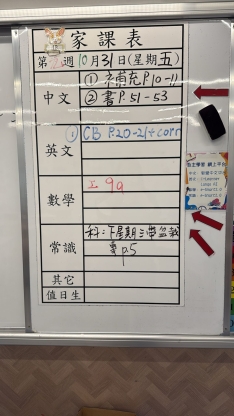 家課表
第 週 10月31日(星期五)
中文
① 補充 P.10-11
② 書 P.51-53
英文
① CB P.20-21+corr
數學
工 9a
常識
科：下星期三帶盆栽
P.5
其它
值日生